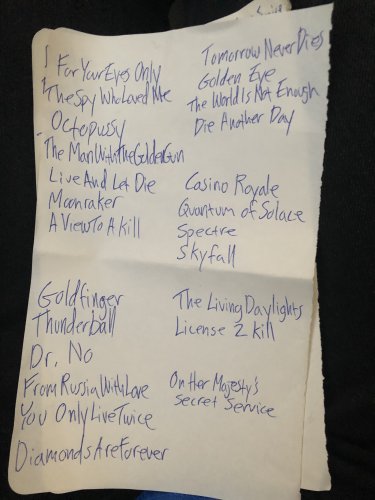 For Your Eyes Only
The Spy Who Loved Me
Octopussy
The Man With The Golden Gun
Live And Let Die
Moonraker
A View To A Kill
Tomorrow Never Dies
Golden Eye
The World Is Not Enough
Die Another Day
Casino Royale
Quantum of Solace
Spectre
Skyfall
Goldfinger
Thunderball
Dr. No
From Russia With Love
You Only Live Twice
Diamonds Are Forever
The Living Daylights
License 2 Kill
On Her Majesty's
Secret Service